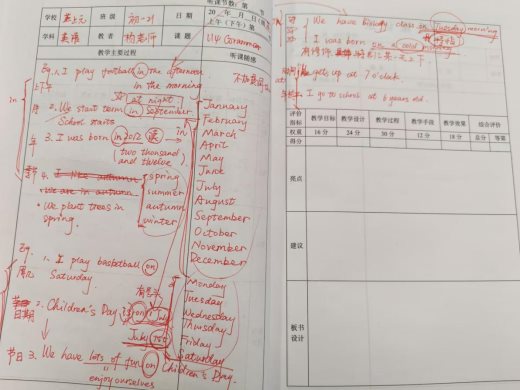 听课节数: 第 节
学校 班级 初一21 日期 20 年 月 日
上午(下午)第
学科 英语 教者 杨老师 课题 U4 Grammar
教学主要过程 听课随感
Eg. 1. I play football in the afternoon
in the morning
at night.
上下午
in
月 2. We start term in September
School starts
年 3. I was born in 2012 读 in
(two thousand
and twelve)
季节 4. I like autumn
We are in autumn
• We plant trees in
spring.
spring
summer
autumn
winter
January
February
March
April
May
June
July
August
September
October
November
December
Eg.
周几 1. I play basketball on
Saturday.
日期 2. Children's Day is on 1 July
July 1st
节日 3. We have lots of fun on Children's Day.
enjoy ourselves
Monday
Tuesday
Wednesday
Thursday
Friday
Saturday
We have biology class on Tuesday morning
I was born on a cold morning
有修饰 上下
He gets up at 7 o'clock.
I go to school at 6 years old.
评价指标 教学目标 教学设计 教学过程 教学手段 教学效果 综合评价
权重 16分 24分 30分 12分 18分 总分 等第
得分
亮点
建议
板书设计